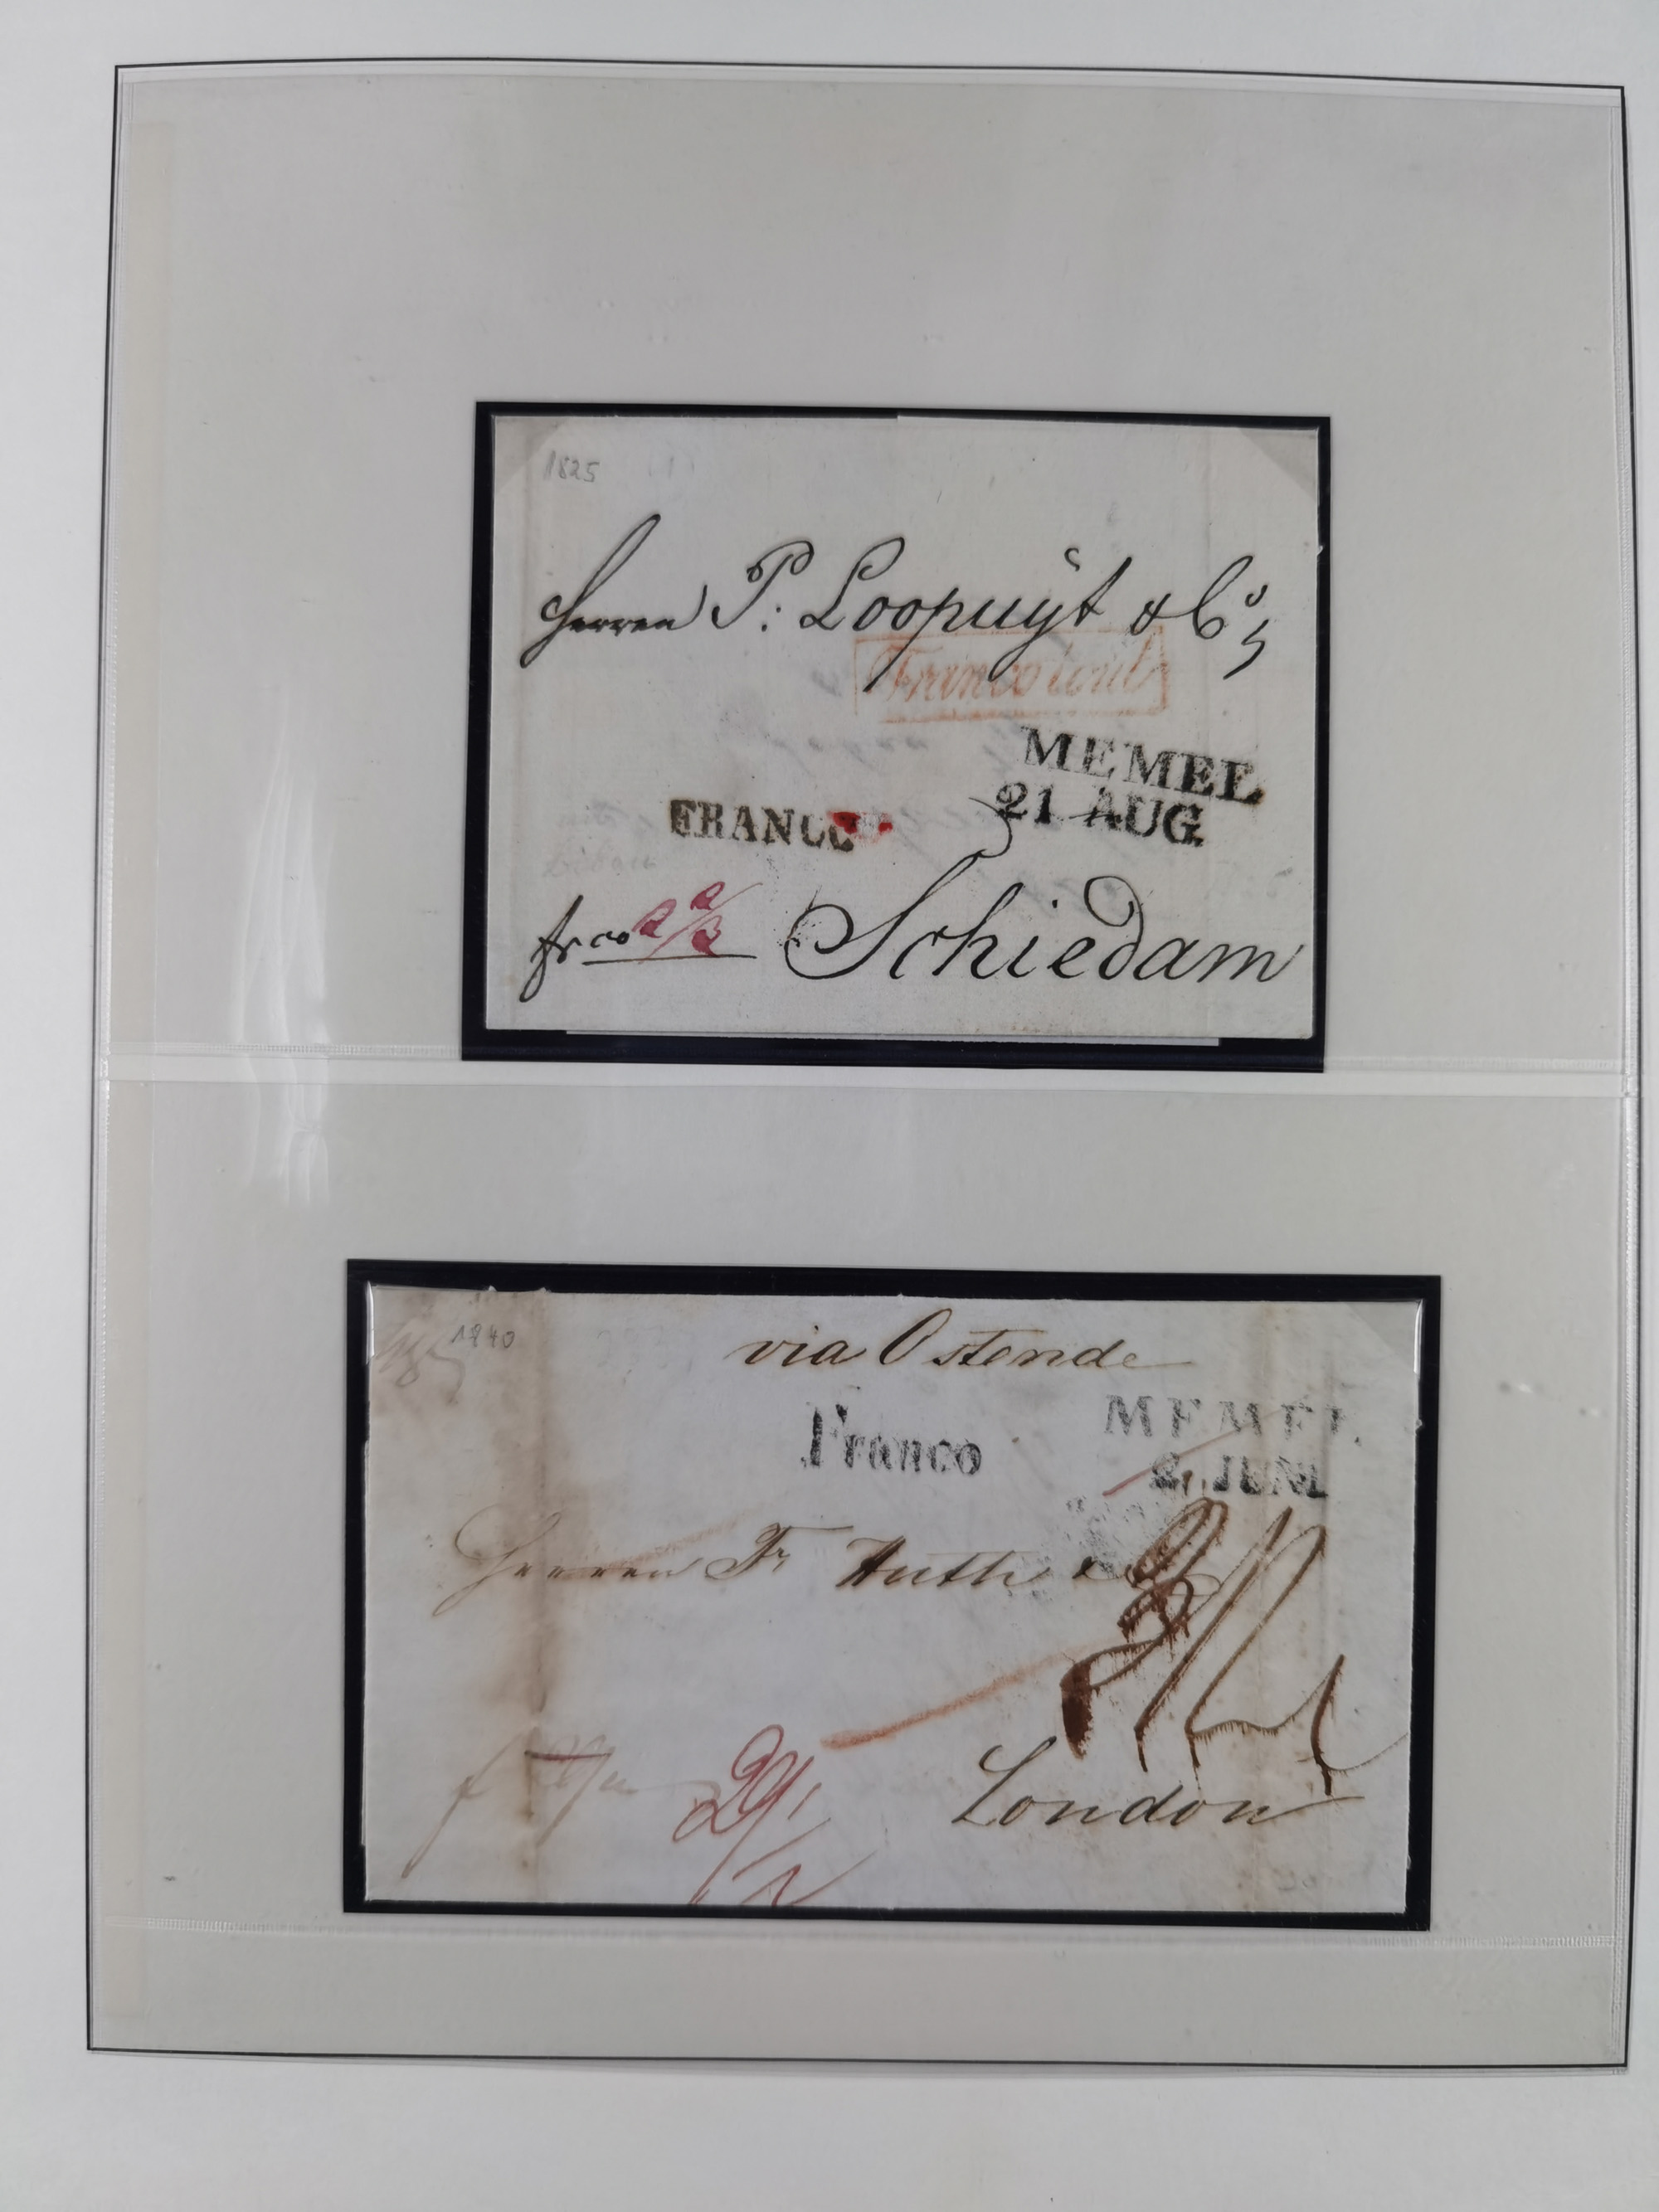 1825
Herren P: Loopuÿt & Co,
Franco tout
MEMEL
21 AUG.
FRANCO
Libau
frco
Schiedam
1840
via Ostende
Franco
MEMEL
2. JUNI
Herren Fr. Huth &
London